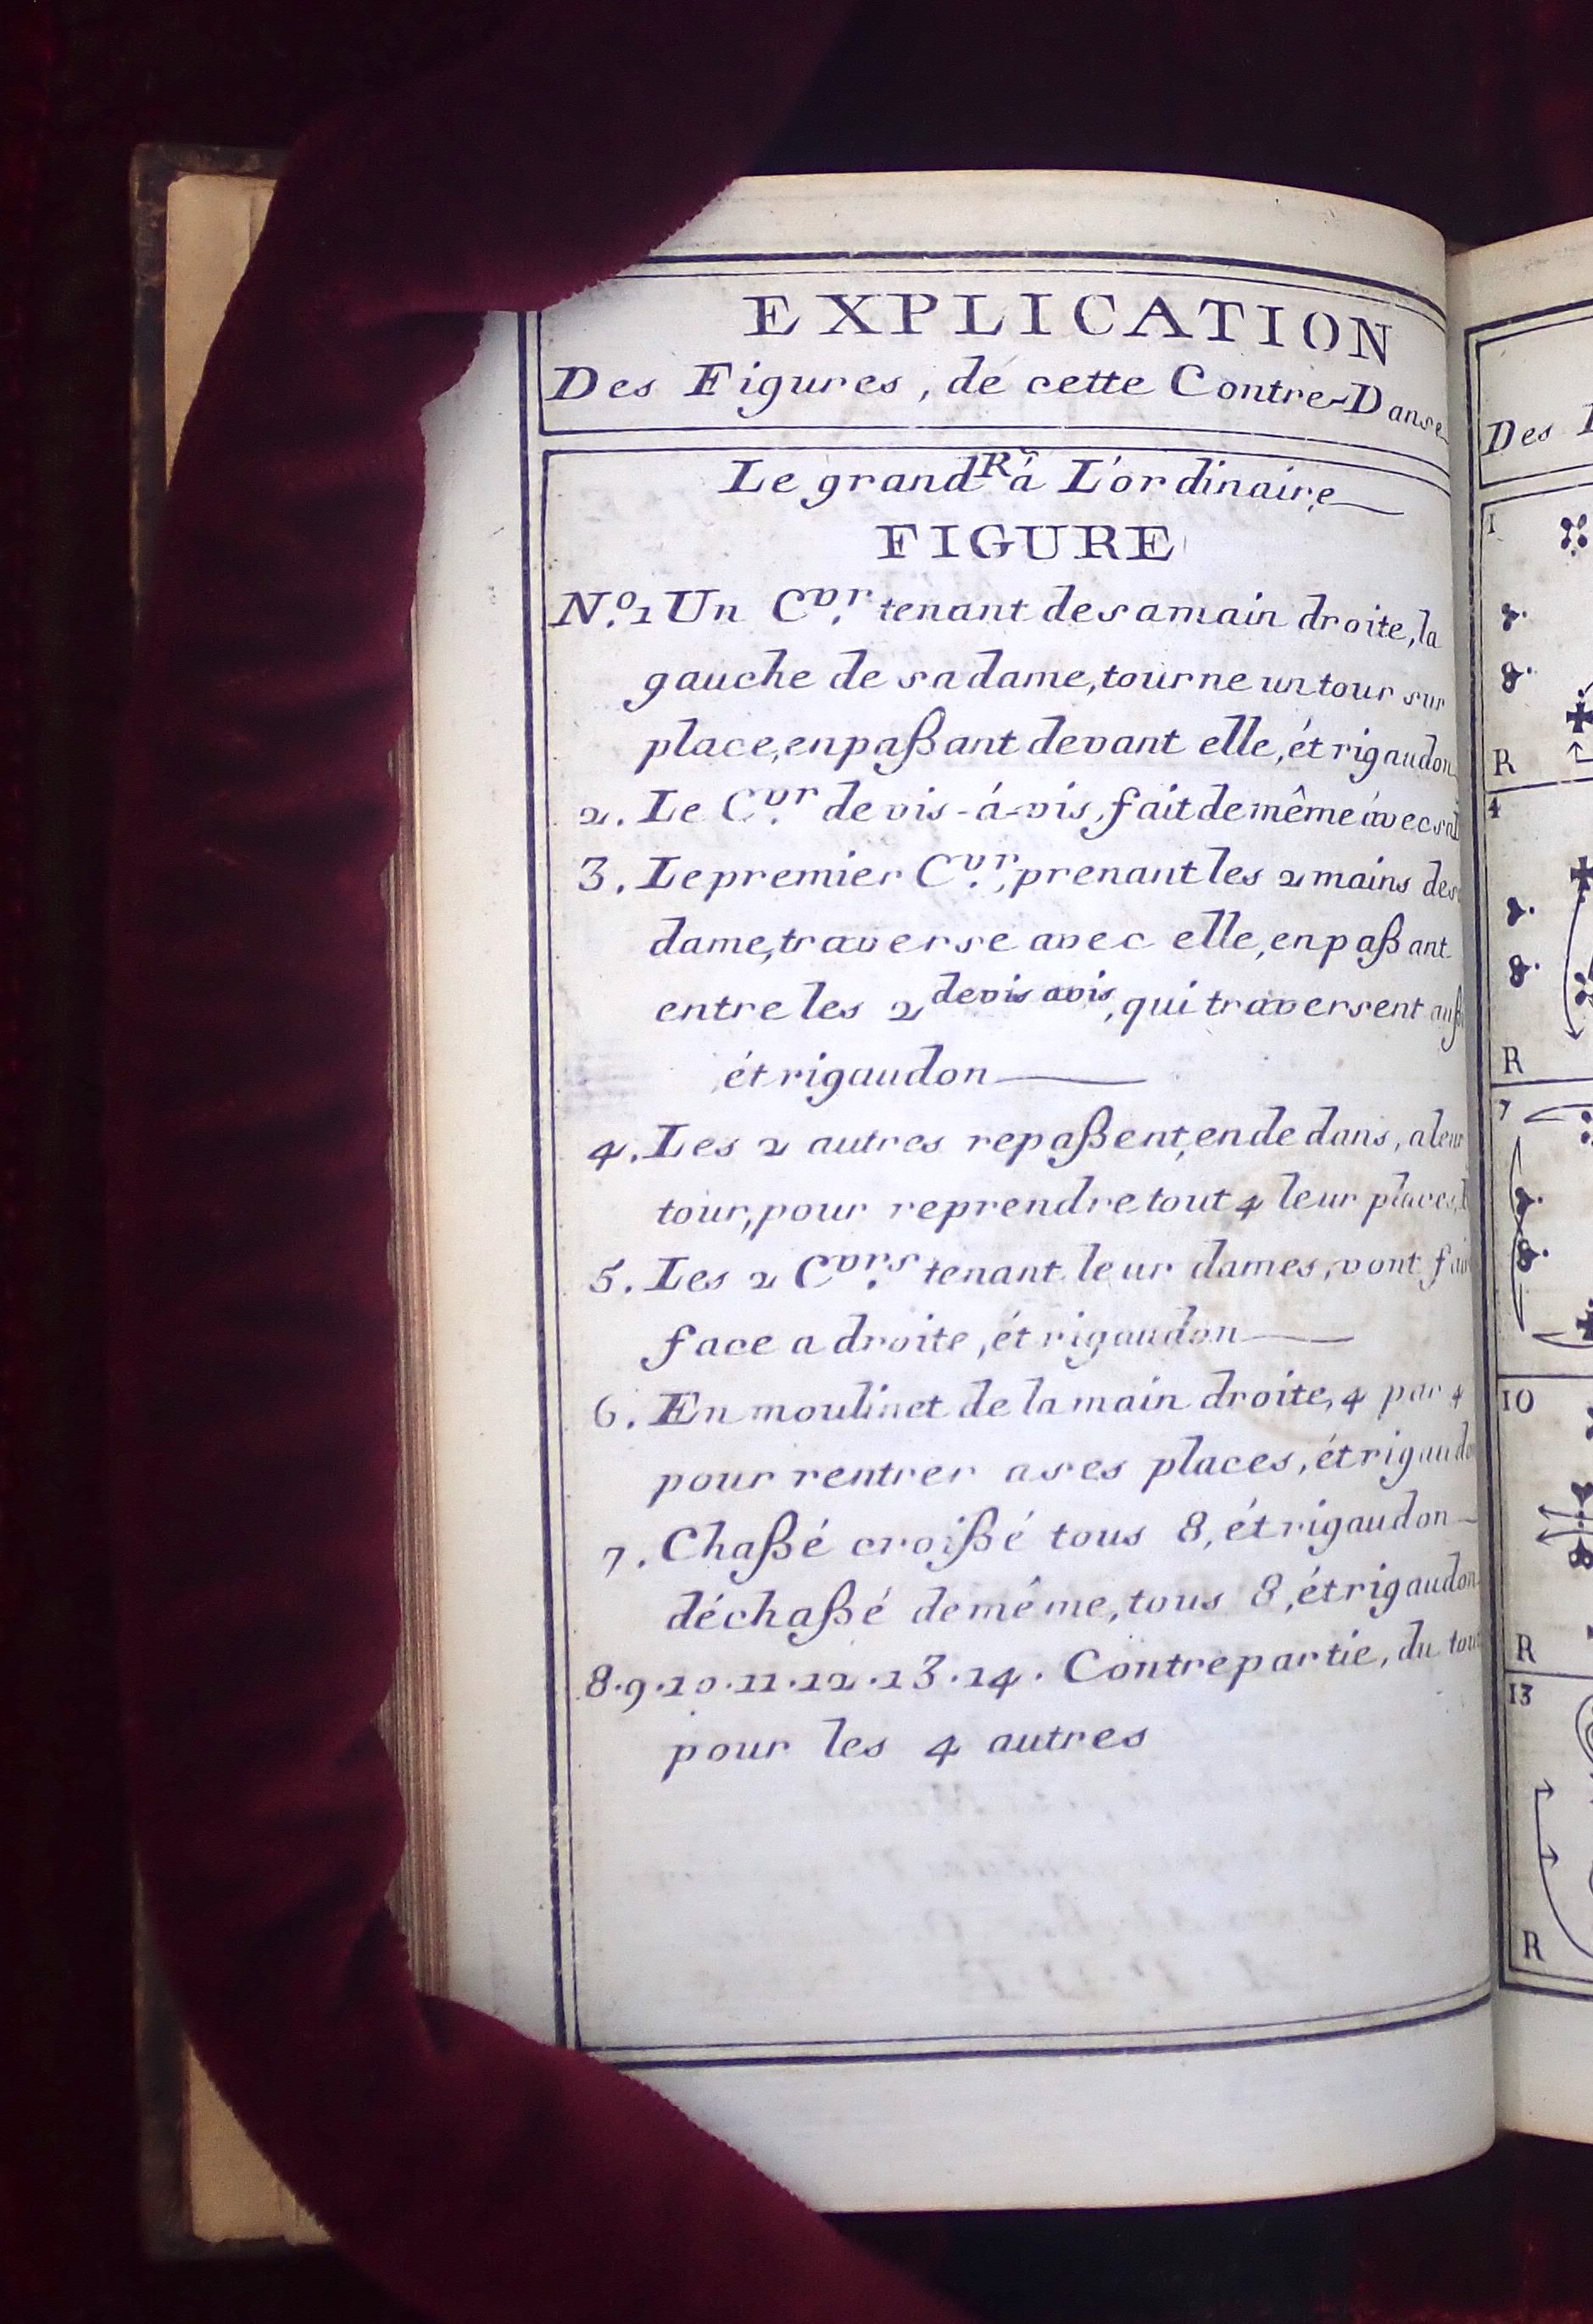 EXPLICATION
Des Figures, dé cette Contre-Danse
Le grand Rᵈ á L'ordinaire
FIGURE
N.º 1 Un Cᵛ.ʳ tenant de sa main droite, la
gauche de sa dame, tourne un tour sur
place, en paßant devant elle, ét rigaudon
2. Le Cᵛ.ʳ de vis-á-vis, fait de même avec sa
3. Le premier Cᵛ.ʳ, prenant les 2 mains de sa
dame, traverse avec elle, en paßant
entre les 2 de vis a vis, qui traversent
ét rigaudon
4. Les 2 autres repaßent, en de dans, a leur
tour, pour reprendre tout 4 leur places
5. Les 2 Cᵛ.ʳˢ tenant leur dames, vont
face a droite, ét rigaudon
6. En moulinet de la main droite, 4 par 4
pour rentrer a ses places, ét rigaudon
7. Chaßé croißé tous 8, ét rigaudon
déchaßé de même, tous 8, ét rigaudon
8.9.10.11.12.13.14. Contrepartie, du tout
pour les 4 autres
Des
1
R
4
R
7
10
R
13
R